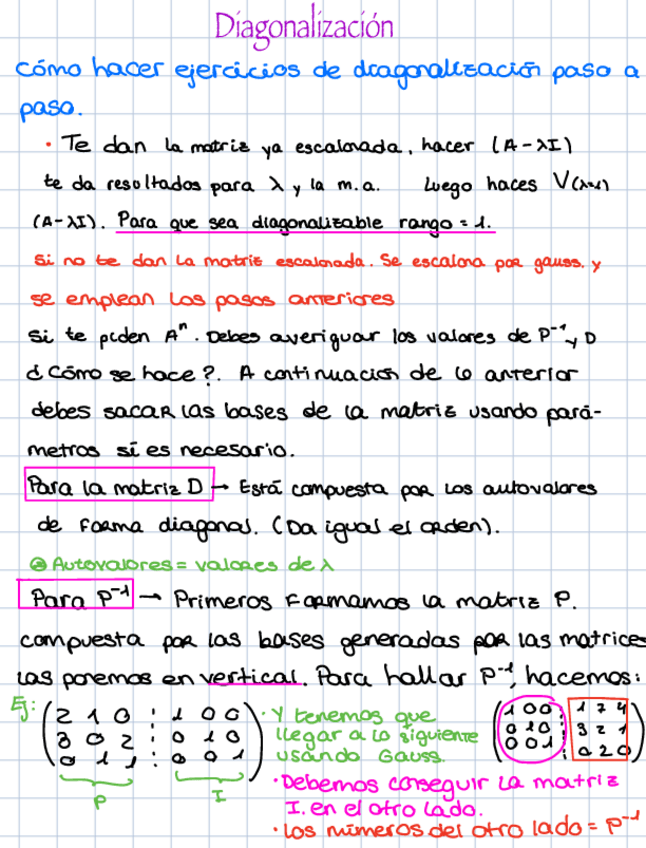 Diagonalización
cómo hacer ejercicios de diagonalización paso a
paso.
· Te dan la matriz ya escalonada, hacer (A-λI)
te da resoltados para λ y la m.a. Luego haces V(λ=1)
(A-λI). Para que sea diagonalizable rango = 1.
Si no te dan la matriz escalonada. Se escalona por gauss. y
se emplean los pasos anteriores
Si te piden Aⁿ. Debes averiguar los valores de P⁻¹ y D
¿Cómo se hace?. A continuación de lo anterior
debes sacar las bases de la matriz usando pará-
metros si es necesario.
Para la matriz D → Está compuesta por los autovalores
de forma diagonal. (Da igual el orden).
Autovalores = valores de λ
Para P⁻¹ → Primeros Formamos la matriz P.
compuesta por las bases generadas por las matrices
las ponemos en vertical. Para hallar P⁻¹, hacemos:
Ej: (2 1 0 : 1 0 0) · Y tenemos que (1 0 0 : 1 7 4)
(3 0 2 : 0 1 0) llegar a lo siguiente (0 1 0 : 3 2 1)
(0 1 1 : 0 0 1) usando Gauss. (0 0 1 : 0 2 0)
P I
· Debemos conseguir la matriz
I. en el otro lado.
· Los números del otro lado = P⁻¹